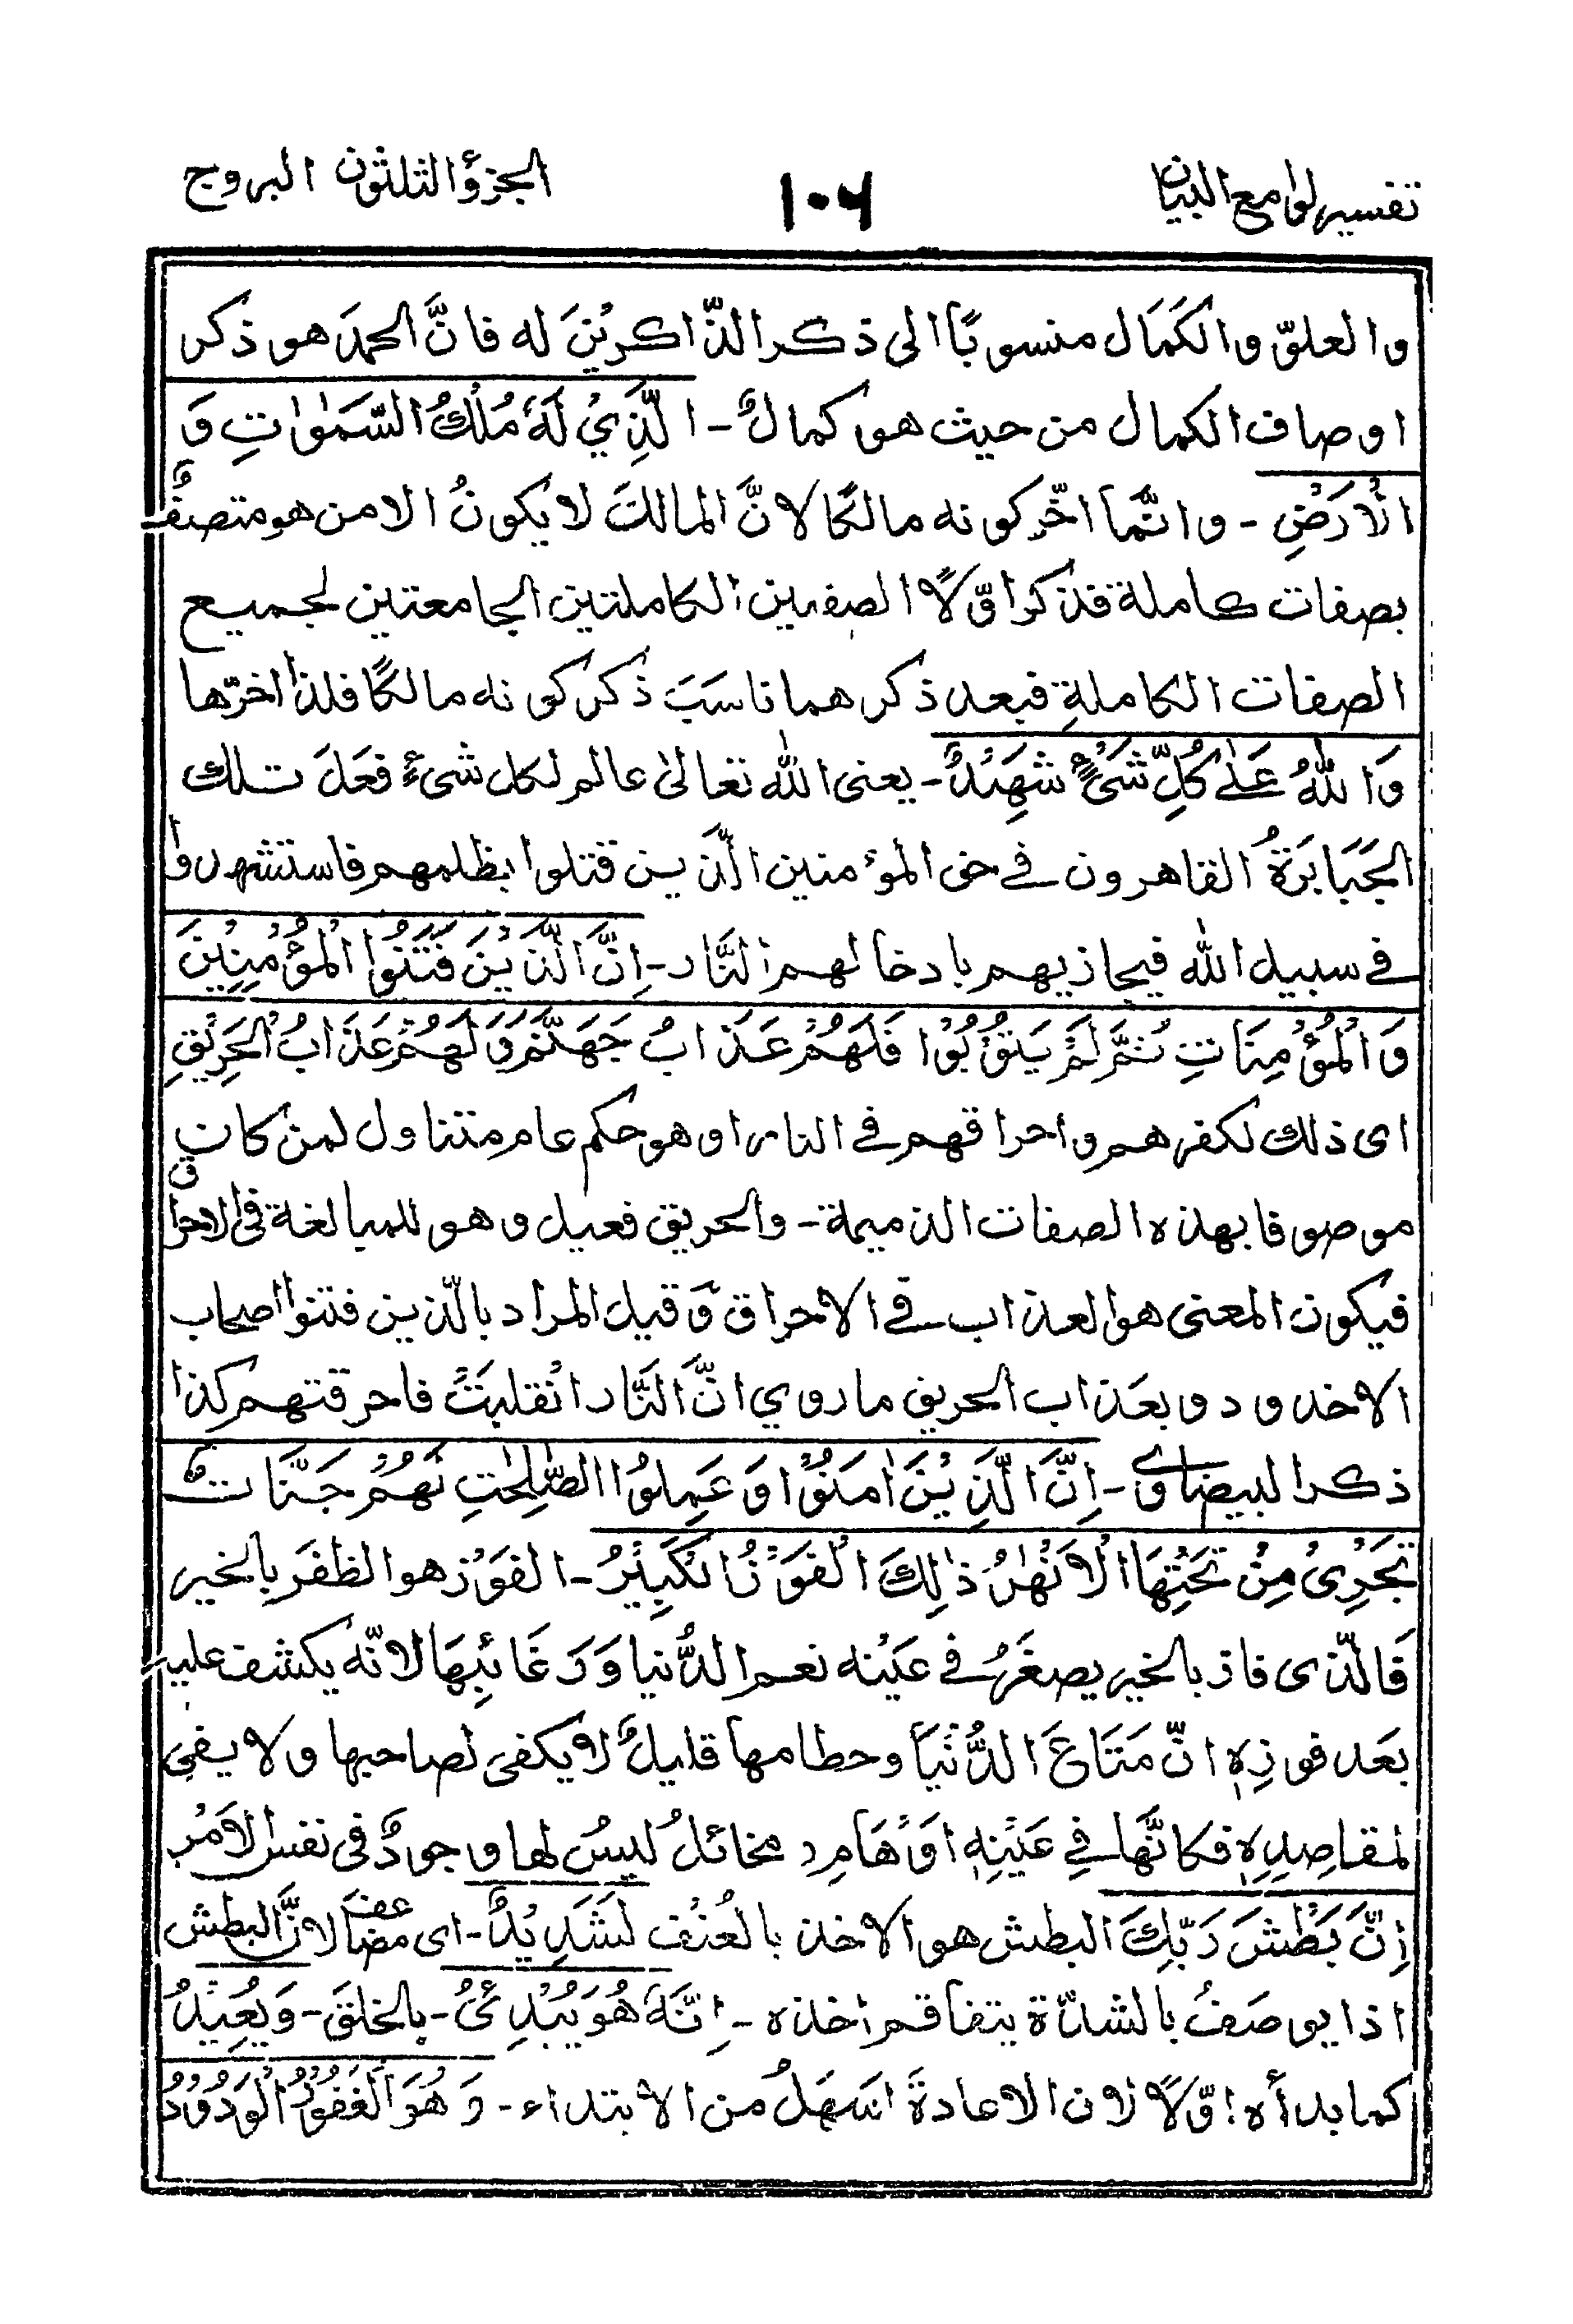 تفسير لوامع البيان ١٠٦ الجزؤ الثلثون البروج
والعلوّ والكَمَال منسوبًا الى ذكر الذّاكرِيْنَ له فانَّ الحمدَ هو ذكر
اوصاف الكمال من حيث هو كمالٌ - الَّذِيْ لَهٗ مُلْكُ السَّمٰوٰتِ وَ
الْأَرْضِ - وانَّمَا اخّر كونه مالكًا لانَّ المالكَ لا يكونُ الا من هو متصفٌ
بصفات كاملة فذكر اوّلًا الصفتين الكاملتين الجامعتين لجميع
الصفات الكاملةِ فبعد ذكرهما ناسَبَ ذكر كونه مالكًا فلذا اخرّها
وَاللّٰهُ عَلٰى كُلِّ شَيْءٍ شَهِيْدٌ - يعنى اللّٰه تعالىٰ عالم لكل شىءٍ فعَلَ تلك
الجَبَابَرَةُ القاهرون فى حق المؤمنين الّذين قتلوا بظلمهم فاستشهدوا
فى سبيل اللّٰه فيجازيهم بادخالهم النَّار - اِنَّ الَّذِيْنَ فَتَنُوا الْمُؤْمِنِيْنَ
وَالْمُؤْمِنَاتِ ثُمَّ لَمْ يَتُوْبُوْا فَلَهُمْ عَذَابُ جَهَنَّمَ وَلَهُمْ عَذَابُ الْحَرِيْقِ
اى ذلك لكفرهم واحراقهم فى النار او هو حكم عام متناول لمن كان
موصوفا بهذه الصفات الذميمة - والحريق فعيل وهو للمبالغة فى الاحراق
فيكون المعنى هو العذاب فى الاحراق وَقيل المراد بالّذين فتنوا اصحاب
الاخدود وبعَذاب الحريق ما روي انَّ النَّار انْقلبَتْ فاحرقتهم كذا
ذكر البيضاوى - اِنَّ الَّذِيْنَ اٰمَنُوْا وَعَمِلُوا الصّٰلِحٰتِ لَهُمْ جَنَّاتٌ
تَجْرِىْ مِنْ تَحْتِهَا الْاَنْهٰرُ ذٰلِكَ الْفَوْزُ الْكَبِيْرُ - الفَوْز هو الظفَر بالخير
فَالّذى فاز بالخير يصغَرُ فى عيْنه نعم الدُّنيا وَرَغَائِبهَا لانّه يكشف عليه
بعَد فوزِهٖ انّ مَتَاعَ الدُّنْيَا وحطامها قليلٌ لا يكفىَ لصاحبها ولا يفى
لمقاصِدِهٖ فكانَّها فِي عَيْنِهٖ اَوْهَام ومخائلُ ليسُ لها وجودٌ فى نفس الاَمْر
اِنَّ بَطْشَ رَبِّكَ البطش هو الاخذ بالعُنْف لَشَدِيْدٌ - اى مضاعف لانَّ البطش
اذا يوصَفُ بالشدّة يتفاقم اخذه - اِنَّهٗ هُوَ يُبْدِئُ - بالخلقَ - وَيُعِيْدُ
كما بدأه اوّلًا لان الاعادةَ اسَهَلُ من الابتداء - وَهُوَ الْغَفُوْرُ الْوَدُوْدُ